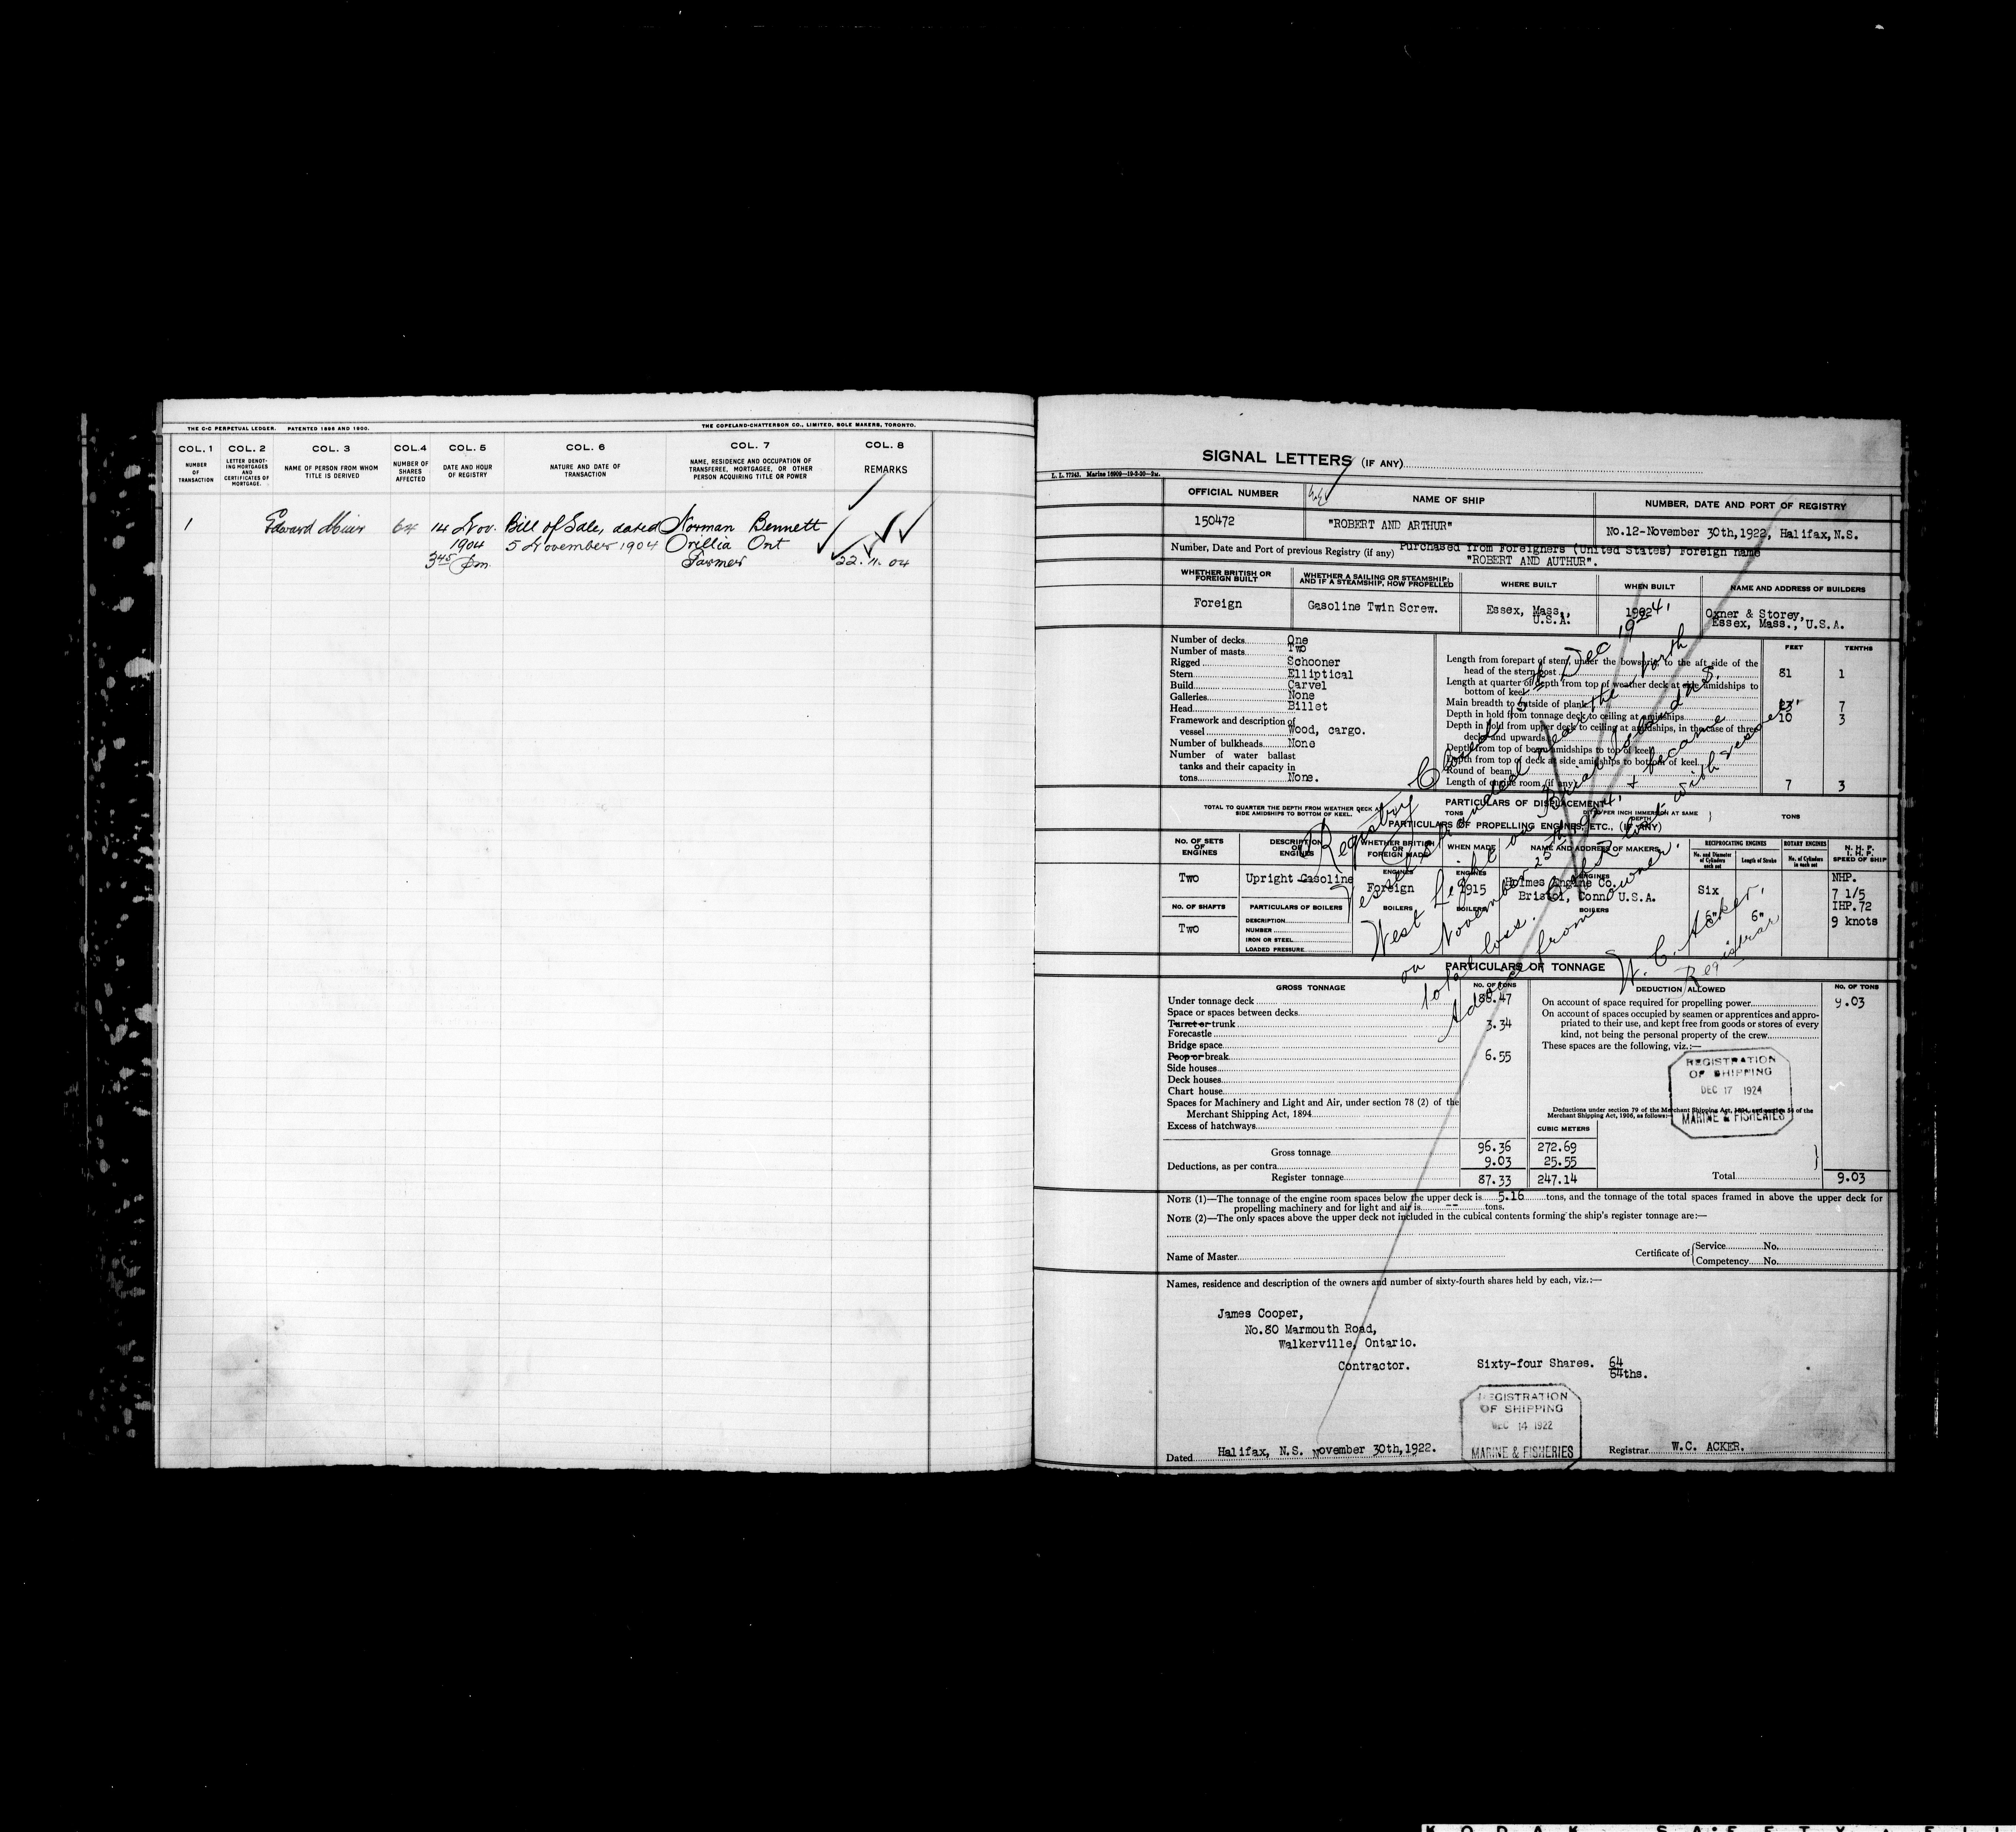 THE C-C PERPETUAL LEDGER. PATENTED 1896 AND 1900. THE COPELAND-CHATTERSON CO., LIMITED, SOLE MAKERS, TORONTO.
COL. 1 COL. 2 COL. 3 COL. 4 COL. 5 COL. 6 COL. 7 COL. 8
NUMBER OF TRANSACTION
LETTER DENOTING MORTGAGES AND CERTIFICATES OF MORTGAGE.
NAME OF PERSON FROM WHOM TITLE IS DERIVED
NUMBER OF SHARES AFFECTED
DATE AND HOUR OF REGISTRY
NATURE AND DATE OF TRANSACTION
NAME, RESIDENCE AND OCCUPATION OF TRANSFEREE, MORTGAGEE, OR OTHER PERSON ACQUIRING TITLE OR POWER
REMARKS
1 Edward 64 14 Nov. Bill of Sale, dated Norman Bennett
1904 5 November 1904 Orillia Ont
3 45 pm. Farmer 22.11.04
SIGNAL LETTERS (IF ANY)
L. L. 77243. Marine 16909—19-3-20—2M.
OFFICIAL NUMBER NAME OF SHIP NUMBER, DATE AND PORT OF REGISTRY
150472 "ROBERT AND ARTHUR" No.12-November 30th,1922, Halifax,N.S.
Number, Date and Port of previous Registry (if any) Purchased from Foreigners (United States) Foreign name
"ROBERT AND AUTHUR".
WHETHER BRITISH OR FOREIGN BUILT
WHETHER A SAILING OR STEAMSHIP; AND IF A STEAMSHIP, HOW PROPELLED
WHERE BUILT
WHEN BUILT
NAME AND ADDRESS OF BUILDERS
Foreign Gasoline Twin Screw. Essex, Mass., U.S.A. 1902 Oxner & Storey,
Essex, Mass., U.S.A.
FEET TENTHS
Number of decks One
Number of masts Two
Rigged Schooner
Stern Elliptical
Build Carvel
Galleries None
Head Billet
Framework and description of
vessel Wood, cargo.
Number of bulkheads None
Number of water ballast
tanks and their capacity in
tons None.
Length from forepart of stem, under the bowsprit, to the aft side of the
head of the stern post 81 1
Length at quarter of depth from top of weather deck at side amidships to
bottom of keel
Main breadth to outside of plank 23 7
Depth in hold from tonnage deck to ceiling at amidships 10 3
Depth in hold from upper deck to ceiling at amidships, in the case of three
decks and upwards
Depth from top of beam amidships to top of keel
Depth from top of deck at side amidships to bottom of keel
Round of beam
Length of engine room (if any) 7 3
Registry Closed 5th Dec 1924.
Vessel stranded near the North
West Light on Brial Island N.S.
on November 25th 1924, & became
total loss. Certf. lost with vessel
Advice from owner.
W. C. Acker,
Registrar
PARTICULARS OF DISPLACEMENT
TOTAL TO QUARTER THE DEPTH FROM WEATHER DECK AT SIDE AMIDSHIPS TO BOTTOM OF KEEL. TONS
DITTO PER INCH IMMERSION AT SAME DEPTH TONS
PARTICULARS OF PROPELLING ENGINES, ETC., (IF ANY)
NO. OF SETS OF ENGINES
DESCRIPTION OF ENGINES
WHETHER BRITISH OR FOREIGN MADE
WHEN MADE
NAME AND ADDRESS OF MAKERS
RECIPROCATING ENGINES
No. and Diameter of Cylinders each set
Length of Stroke
ROTARY ENGINES
No. of Cylinders in each set
N. H. P.
I. H. P.
SPEED OF SHIP
ENGINES ENGINES ENGINES
Two Upright Gasoline Foreign 1915 Holmes Engine Co.
Bristol, Conn. U.S.A. Six
6" 6"
NHP.
7 1/5
IHP.72
9 knots
NO. OF SHAFTS PARTICULARS OF BOILERS BOILERS BOILERS BOILERS
Two
DESCRIPTION
NUMBER
IRON OR STEEL
LOADED PRESSURE
PARTICULARS OF TONNAGE
GROSS TONNAGE NO. OF TONS DEDUCTION ALLOWED NO. OF TONS
Under tonnage deck 86.47
Space or spaces between decks
Turret or trunk 3.34
Forecastle
Bridge space
Poop or break 6.55
Side houses
Deck houses
Chart house
Spaces for Machinery and Light and Air, under section 78 (2) of the
Merchant Shipping Act, 1894
Excess of hatchways
On account of space required for propelling power 9.03
On account of spaces occupied by seamen or apprentices and appro-
priated to their use, and kept free from goods or stores of every
kind, not being the personal property of the crew
These spaces are the following, viz.:—
REGISTRATION
OF SHIPPING
DEC 17 1924
MARINE & FISHERIES
Deductions under section 79 of the Merchant Shipping Act, 1894, and section 54 of the
Merchant Shipping Act, 1906, as follows:—
CUBIC METERS
Gross tonnage 96.36 272.69
Deductions, as per contra 9.03 25.55
Register tonnage 87.33 247.14
Total 9.03
NOTE (1)—The tonnage of the engine room spaces below the upper deck is 5.16 tons, and the tonnage of the total spaces framed in above the upper deck for
propelling machinery and for light and air is -- tons.
NOTE (2)—The only spaces above the upper deck not included in the cubical contents forming the ship's register tonnage are:—
Name of Master Certificate of Service No.
Competency No.
Names, residence and description of the owners and number of sixty-fourth shares held by each, viz.:—
James Cooper,
No.80 Marmouth Road,
Walkerville, Ontario.
Contractor. Sixty-four Shares. 64
64ths.
REGISTRATION
OF SHIPPING
DEC 14 1922
MARINE & FISHERIES
Dated Halifax, N.S. November 30th,1922.
Registrar W.C. ACKER.
KODAK SAFETY